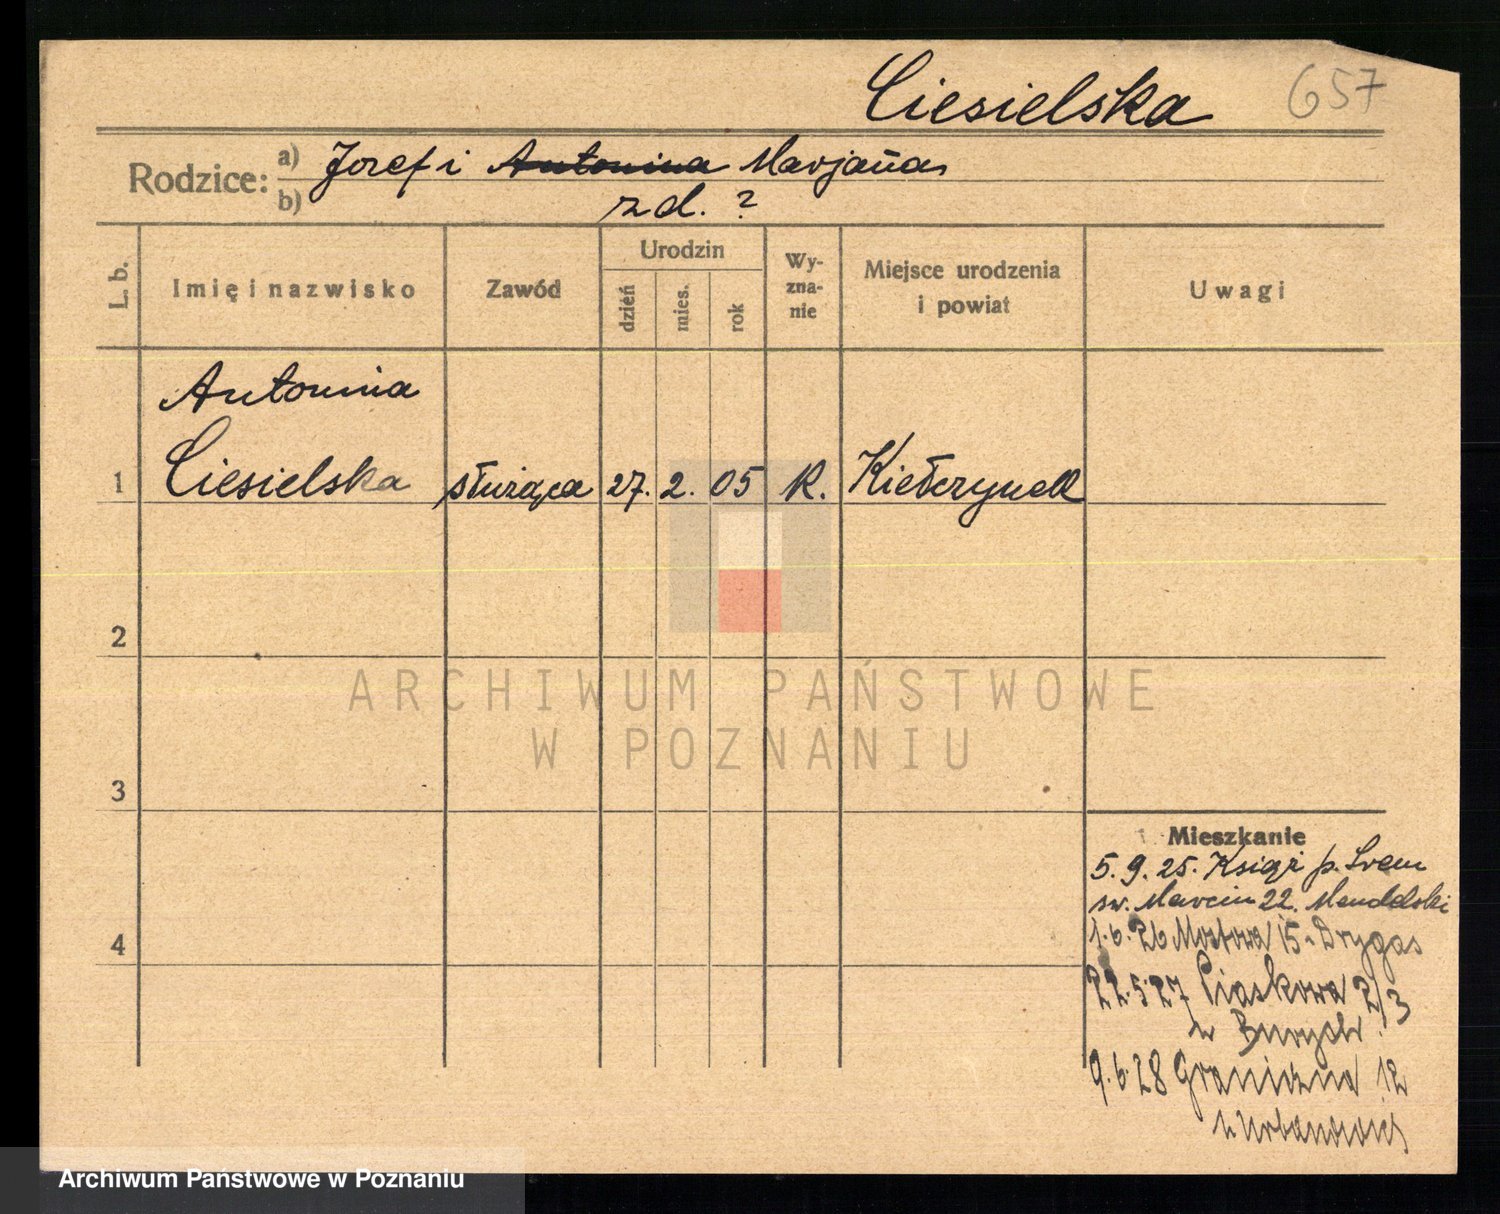 Ciesielska 657
Rodzice: a) Jozef i Antonina Marjanna
b) zd. ?
L. b. Imię i nazwisko Zawód Urodzin dzień mies. rok Wy-zna-nie Miejsce urodzenia i powiat Uwagi
Antonina
1 Ciesielska służąca 27. 2. 05 K. Kiełczynek
2
ARCHIWUM PAŃSTWOWE
W POZNANIU
3
Mieszkanie
5.9.25. Książ p. Śrem
św. Marcin 22.
4
1.6.26 Mostowa 15 Drygas
22.5.27 Piaskowa 2/3
9.6.28 Graniczna 12
Archiwum Państwowe w Poznaniu